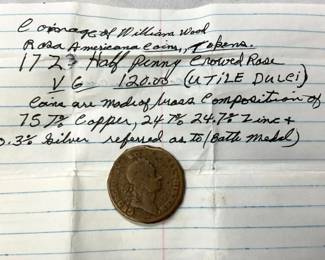 Coinage of William Wood
Rosa Americana Coins,, Tokens.
1723 Half Penny Crowed Rose
VG 120.00 (UTILE DULCI)
Coins are made of brass composition of
75% Copper, 24.7% Zinc +
0.3% Silver referred as to (Bath Medal)